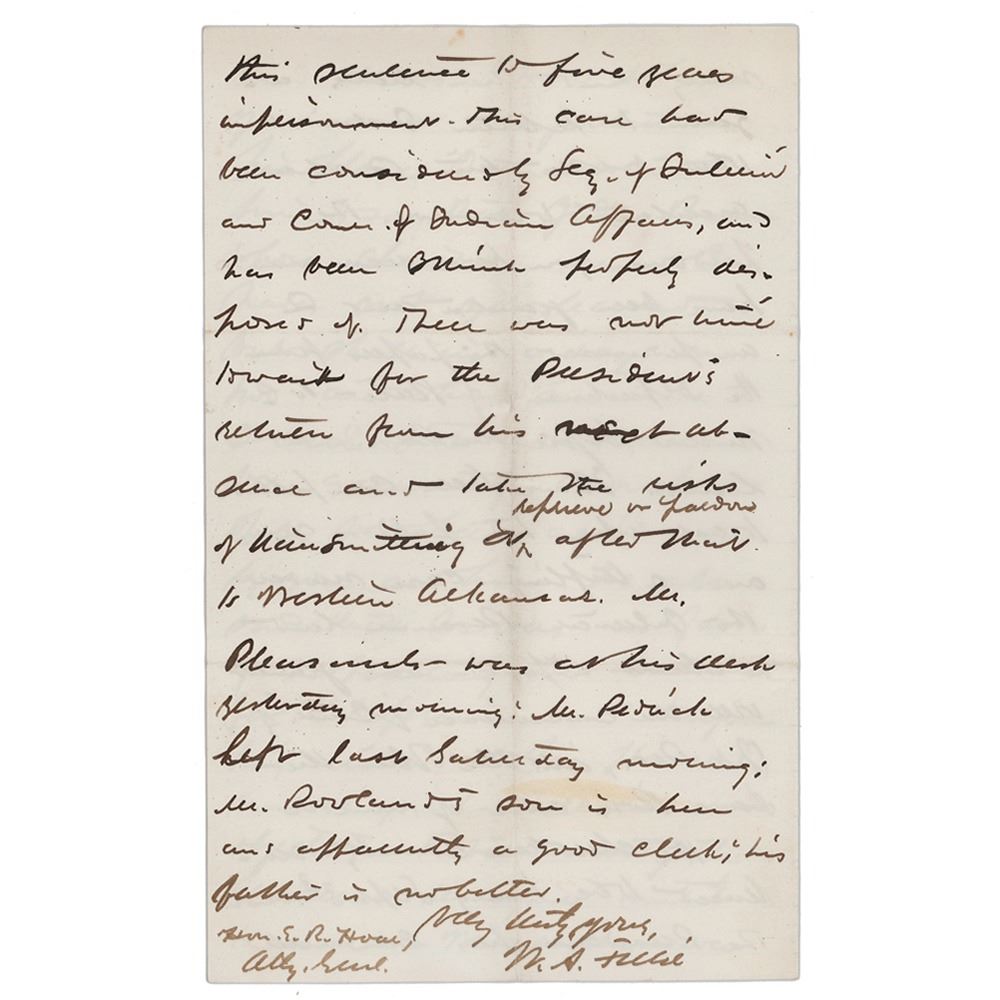 this sentence to five years
imprisonment. This case had
been considered by Secy. of Interior
and Comr. of Indian Affairs, and
has been I think properly dis-
posed of. There was not time
to wait for the President's
return from his ab-
sence and take the risks
reprieve or pardon
of transmitting after that
to Western Arkansas. Mr.
Pleasants was at his desk
yesterday morning: Mr.
left last Saturday morning;
Mr. Rowland's son is here
and apparently a good clerk; his
father is no better.
Very truly yours,
Hon. E. R. Hoar,
Atty. Genl.
W. A. Field